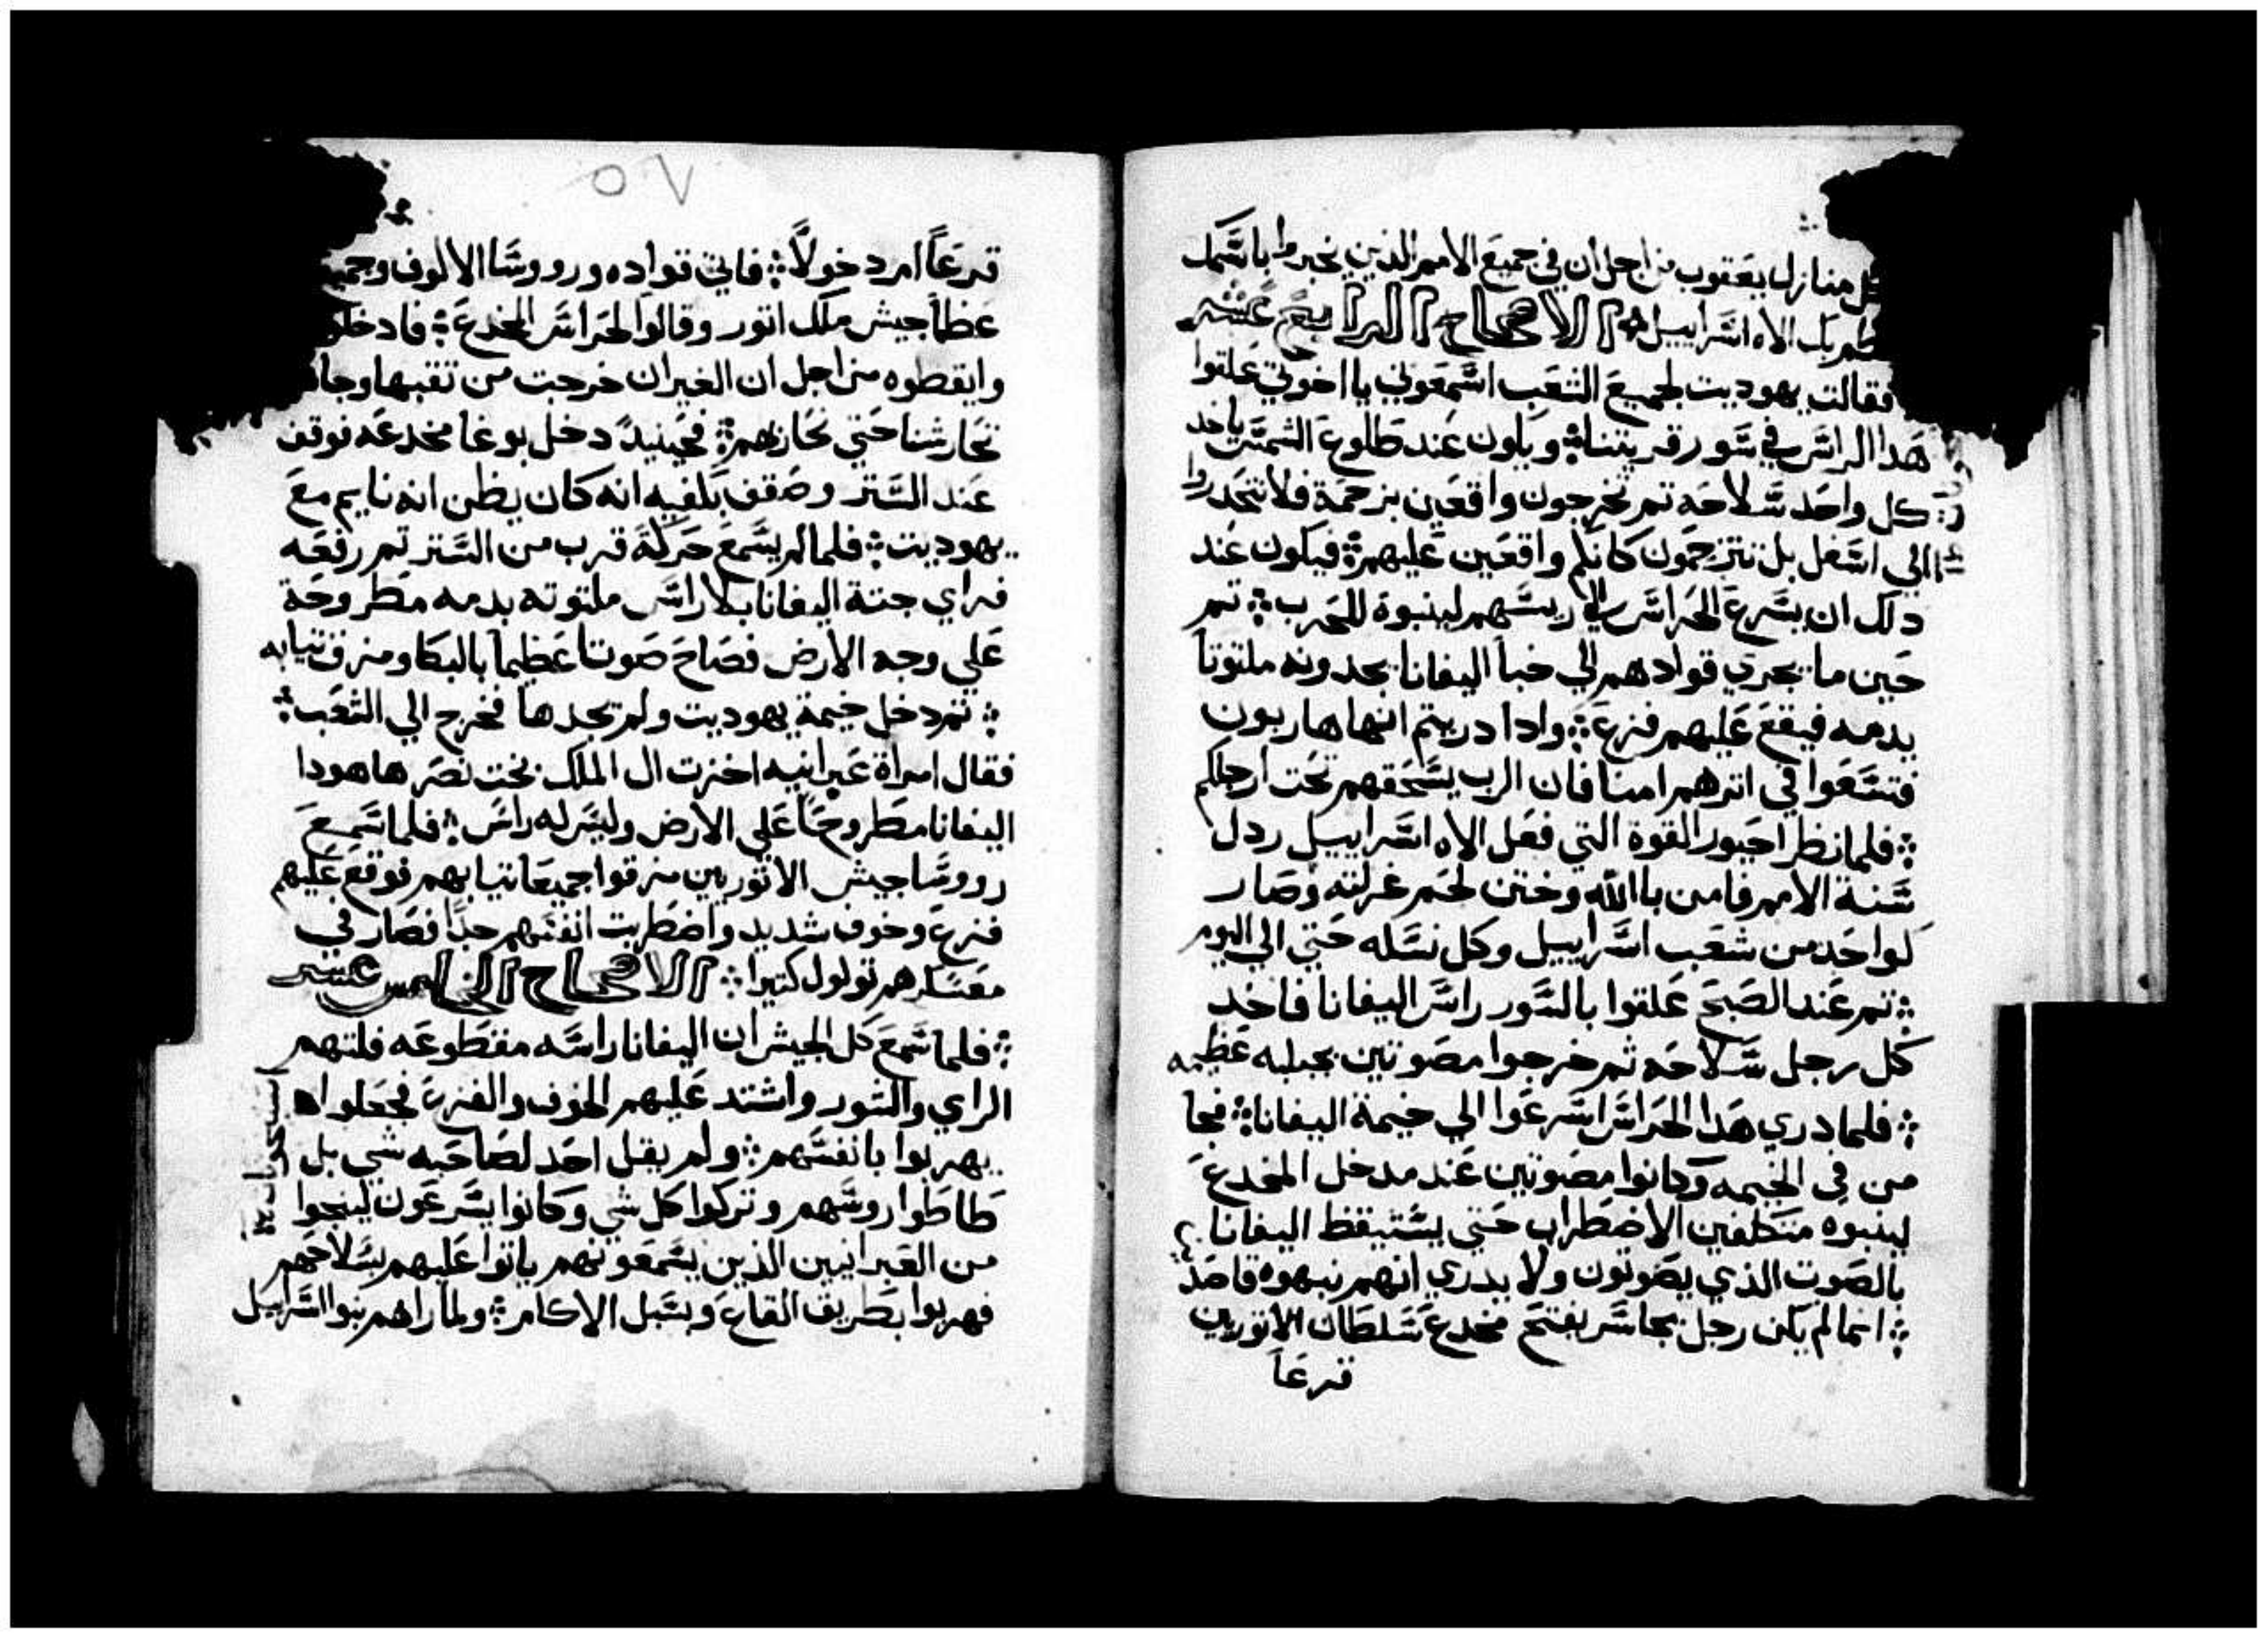 كل منازل يعقوب من اجل ان في جميع الامم الذين يخبروا باسمك
يعظم بك الاه اسراييل ❖ الاصحاح الرابع عشر
فقالت يهوديت لجميع الشعب اسمعوني يا اخوتي علقوا
هدا الراس في سور قريتنا ❖ ويكون عند طلوع الشمس ياخد
كل واحد سلاحه تم تخرجون واقعين بزحمة فلا تتحدروا
الي اسفل بل تتزحمون كانكم واقعين عليهم ❖ فيكون عند
دلك ان يسرع الحراس الي ريسهم لينبوة للحرب ❖ تم
حين ما يجري قوادهم الي خبا اليفانا يجدونه ملتوتا
بدمه فيقع عليهم فزع ❖ وادا دريتم انهم هاربون
فتسعوا في اترهم امنا فان الرب يسحقهم تحت ارجلكم
❖ فلما نظر احيور القوة التي فعل الاه اسراييل ردل
سنة الامم فامن باالله وختن لحم غرلته وصار
كواحد من شعب اسراييل وكل نسله حتي الي اليوم
❖ تم عند الصبح علقوا بالسور راس اليفانا فاخد
كل رجل سلاحه ثم خرجوا مصوتين بجلبه عظيمه
❖ فلما دري هدا الحراس اسرعوا الي خيمة اليفانا ❖ فجا
من في الخيمه وكانوا مصوتين عند مدخل المخدع
لينبوه متكلفين الاضطراب حتي يستيقظ اليفانا
بالصوت الذي يصوتون ولا يدري انهم نبهوه قاصد
❖ انما لم يكن رجل يجاسر يفتح مخدع سلطان الاتوريين
قرعا
٧٥
قرعا امر دخولا ❖ فاتي قواده ورووسا الالوف وجميع
عظما جيش ملك اتور وقالوا لحراس المخدع ❖ فادخلوا
وايقظوه من اجل ان الغيران خرجت من تقبها وجا
تحارشنا حتي نحاربهم ❖ فحينيد دخل بوغا مخدعه فوقف
عند الستر وصقف بكفيه انه كان يظن انه نايم مع
يهوديت ❖ فلما لم يسمع حركة قرب من الستر تم رفعه
فراي جتة اليفانا بلا راس ملتوته بدمه مطروحة
علي وجه الارض فصاح صوتا عظيما بالبكا ومزق تيابه
❖ تم دخل خيمة يهوديت ولم يجدها فخرج الي الشعب ❖
فقال امراة عبرانيه اخزت ال الملك بخت نصر هاهودا
اليفانا مطروحا علي الارض وليس له راس ❖ فلما سمع
رووسا جيش الاتوريين مزقوا جميعا تيابهم فوقع عليهم
فزع وخوف شديد واضطربت انفسهم جدا فصار في
معسكرهم تولول كتيرا ❖ الاصحاح الخامس عشر
❖ فلما سمع كل الجيش ان اليفانا راسه مقطوعه فلتهم
الراي والشور واشتد عليهم الخوف والفزع فجعلوا
يهربوا بانفسهم ❖ ولم يقل احد لصاحبه شي بل
طاطوا روسهم وتركوا كل شي وكانوا يسرعون لينجوا
من العبرانيين الذين يسمعونهم ياتوا عليهم بسلاحهم
فهربوا بطريق القاع وبسبل الاكام ❖ ولما راهم بنوا اسراييل